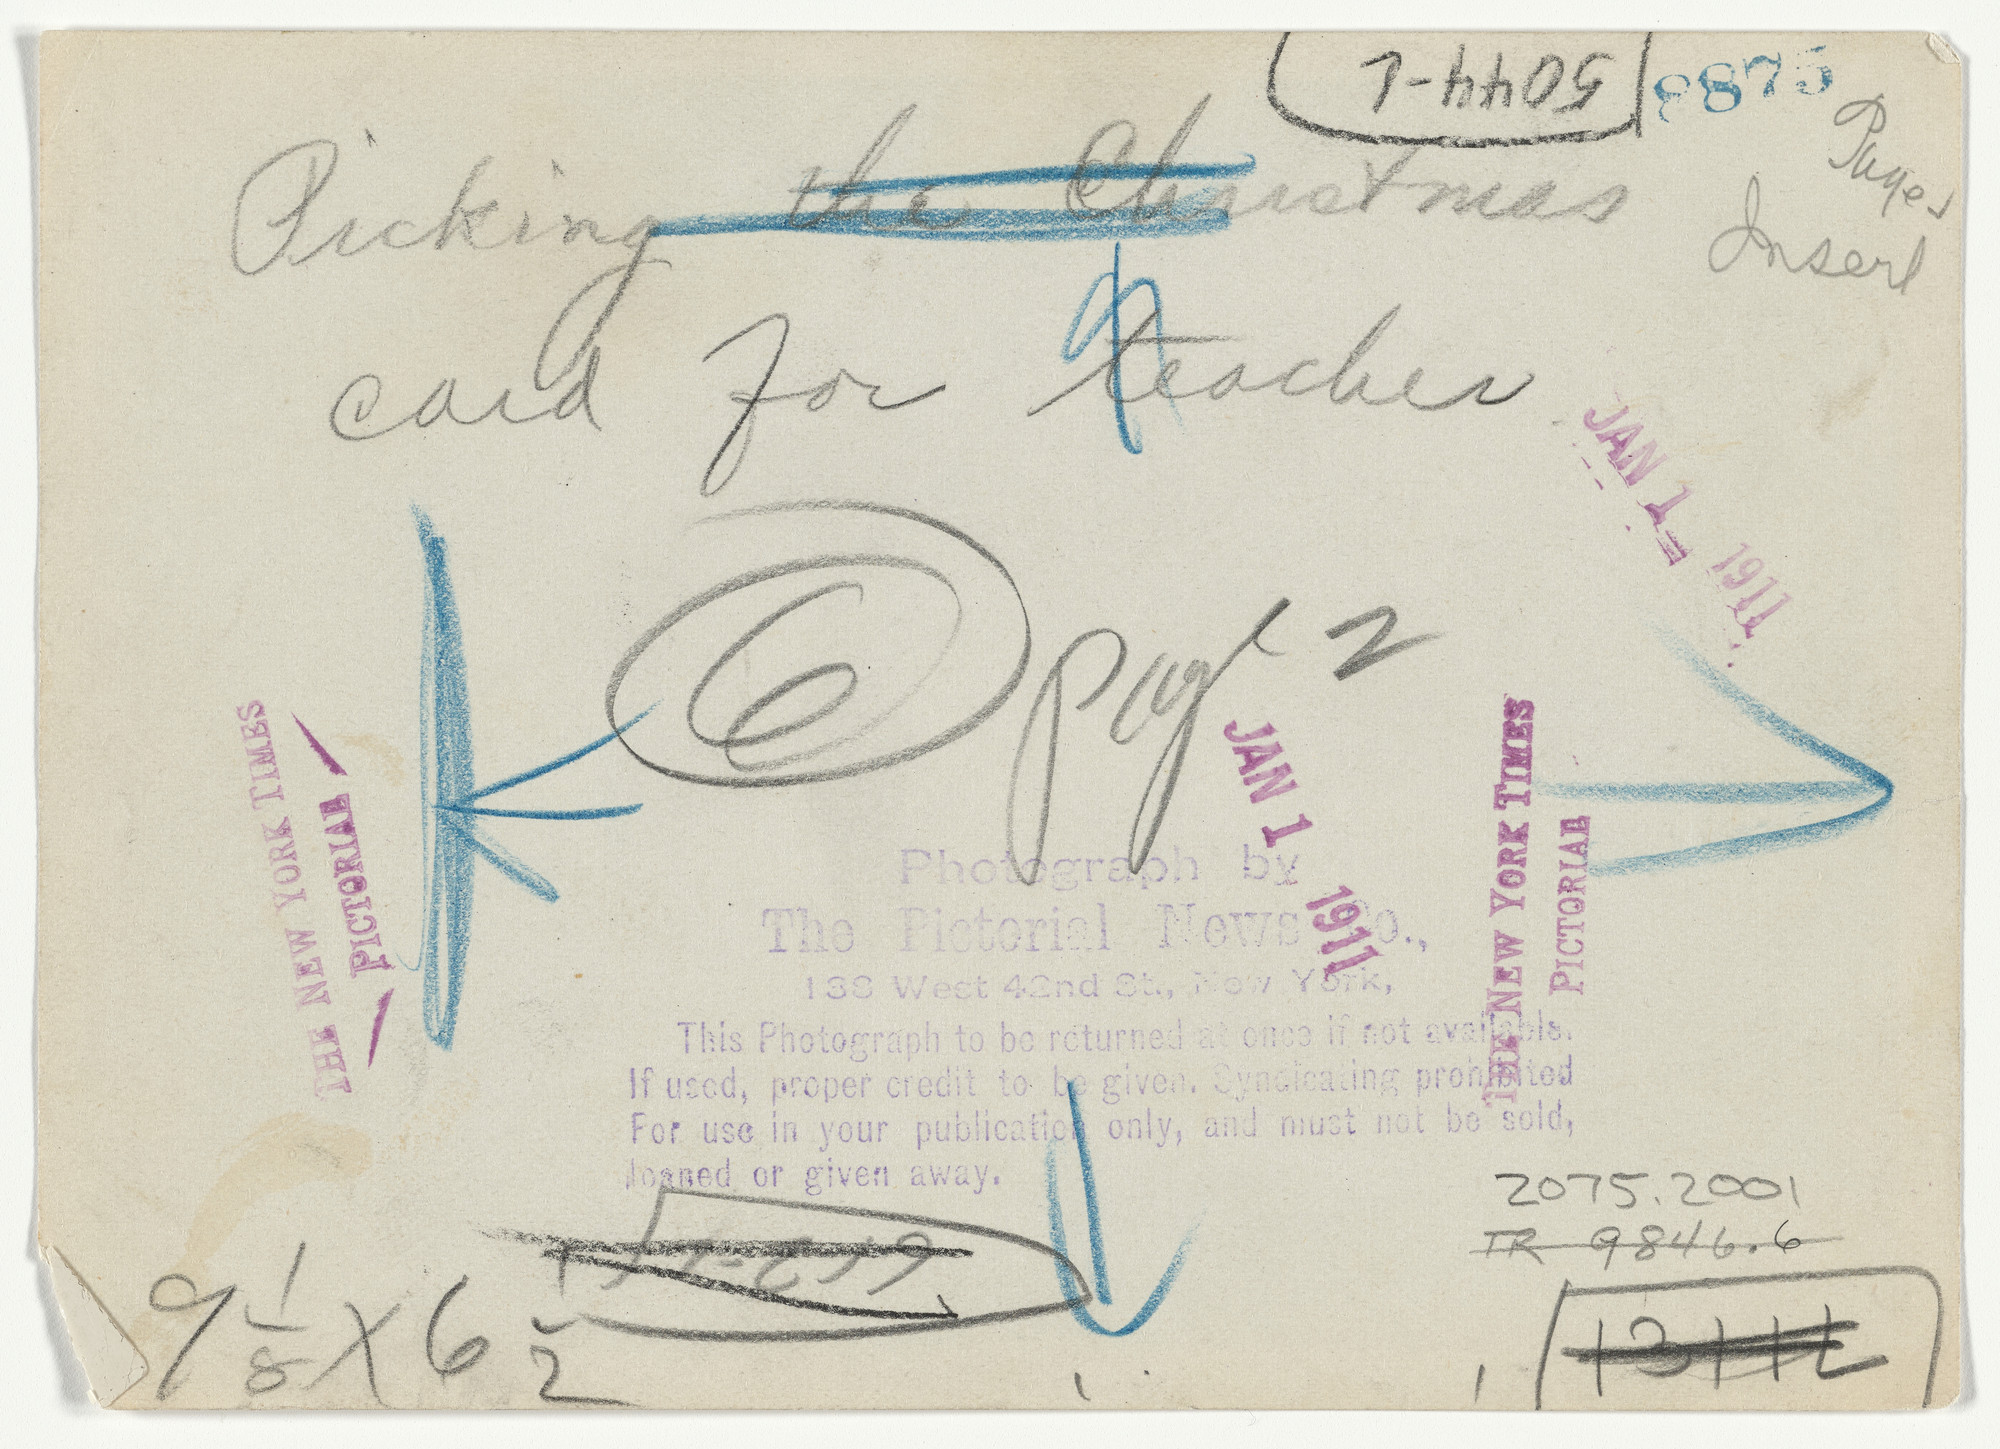 5044-L
8875
Pages
Insert
Picking the Christmas
card for teacher
JAN 1 1911
6 page 2
THE NEW YORK TIMES
PICTORIAL
JAN 1 1911
THE NEW YORK TIMES
PICTORIAL
Photograph by
The Pictorial News Co.,
138 West 42nd St., New York,
This Photograph to be returned at once if not available.
If used, proper credit to be given. Syndicating prohibited
For use in your publication only, and must not be sold,
loaned or given away.
2075.2001
TR 9846.6
9 1/8 X 6 1/2